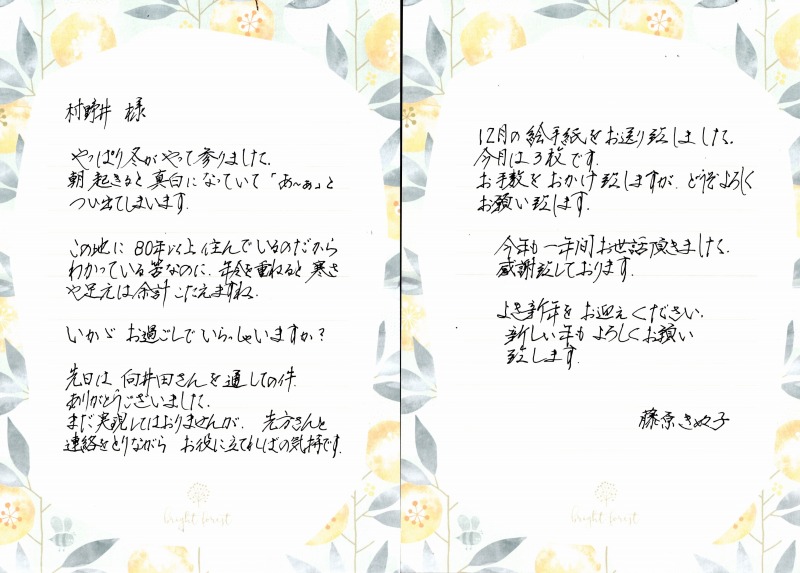 村野井 様
やっぱり冬がやって参りました。
朝起きると真白になっていて「あ〜ぁ」と
つい出てしまいます。
この地に 80年以上住んでいるのだから
わかっている筈なのに、年令を重ねると寒さ
や足元は余計こたえますね。
いかゞ お過ごしでいらっしゃいますか？
先日は 向井田さんを通しての件
ありがとうございました。
まだ実現してはおりませんが、先方さんと
連絡をとりながら お役に立てればの気持です。
bright forest
12月の絵手紙をお送り致しました。
今月は3枚です。
お手数をおかけ致しますが、どうぞよろしく
お願い致します。
今年も一年間お世話頂きました。
感謝致しております。
よき新年をお迎えください。
新しい年もよろしくお願い
致します。
藤原きぬ子
bright forest